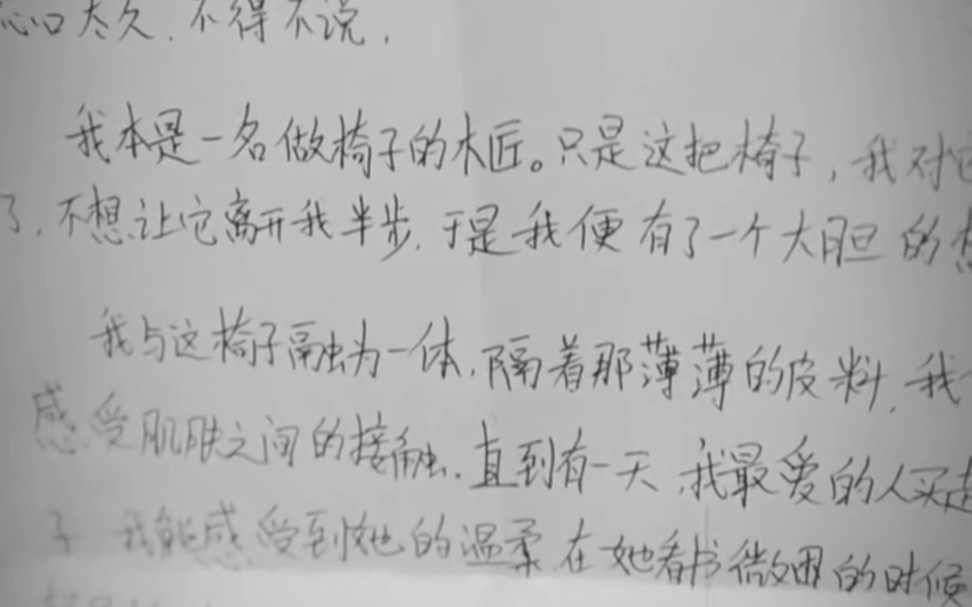 心口太久.不得不说.
我本是一名做椅子的木匠。只是这把椅子,我对它
了.不想让它离开我半步.于是我便有了一个大胆的想
我与这椅子融为一体.隔着那薄薄的皮料,我
感受肌肤之间的接触.直到有一天,我最爱的人买走
子 我能感受到她的温柔 在她看书微困的时候